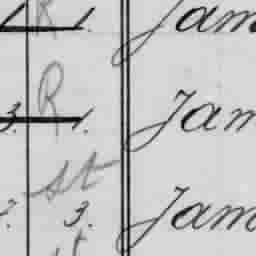 R 1. Jam
R
3. 1. Jam
St
3. Jam